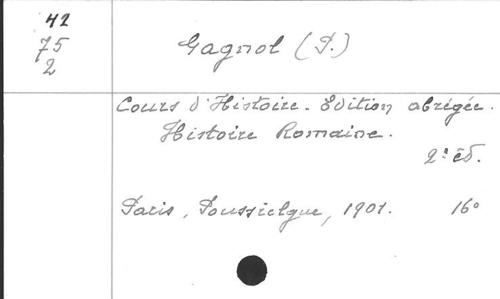 42
75
2
Gagnol (P.)
Cours d'Histoire. Edition abrégée.
Histoire Romaine.
2e éd.
Paris, Poussielgue, 1901. 16°